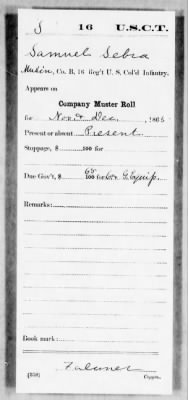 S 16 U.S.C.T.
Samuel Sebra
Co. B, 16 Reg't U. S. Col'd Infantry.
Appears on
Company Muster Roll
for Nov & Dec, 1865
Present or absent Present
Stoppage, $ 100 for
Due Gov't, $ 65 100 for
Remarks:
Book mark:
Falconer
(358) Copyist.